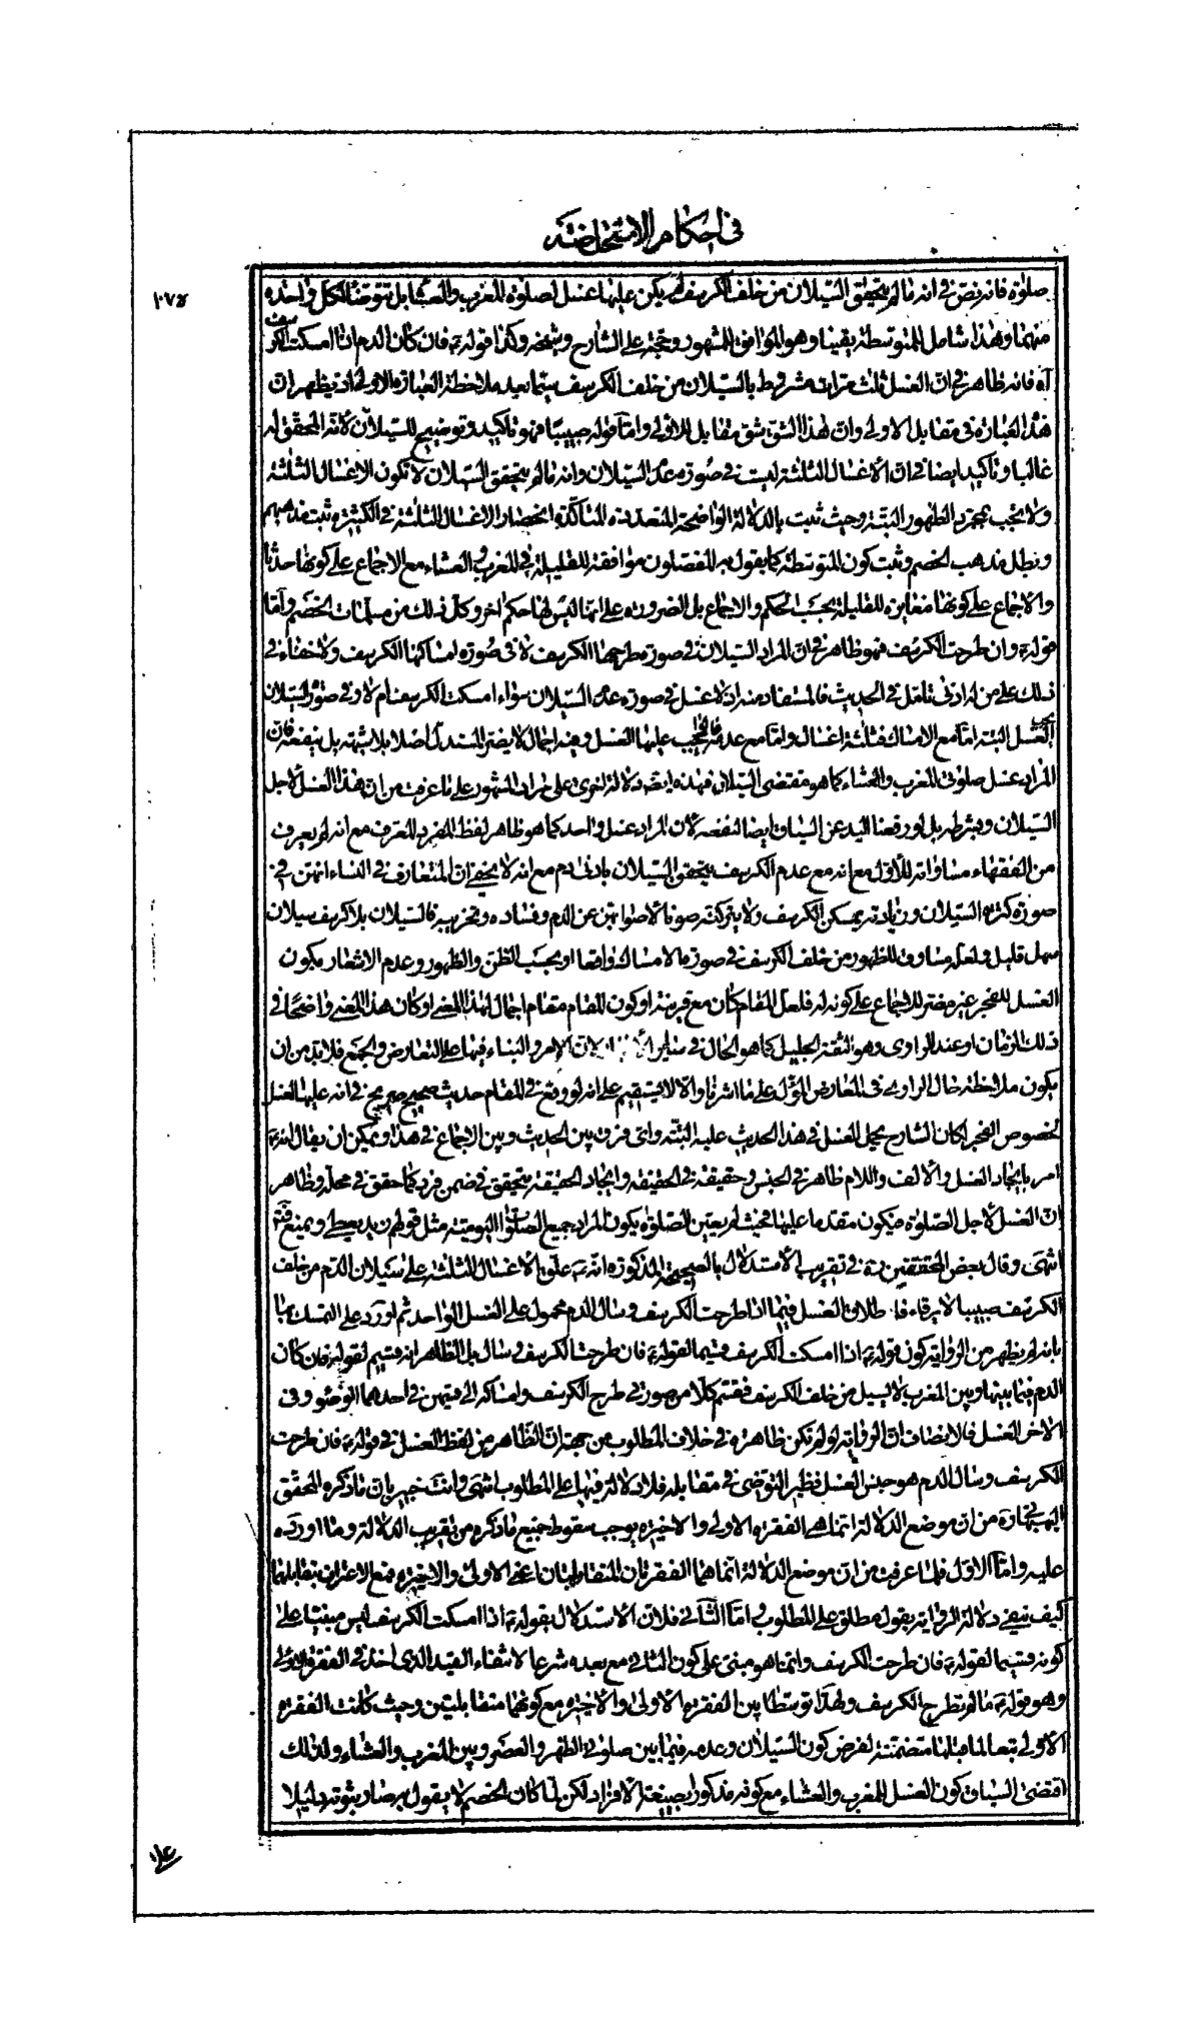 في احكام الاستحاضة
٢٧٥
صلوة فانه نص في انه ما لم يتحقق السيلان من خلف الكرسف لم يكن عليها غسل لصلوة المغرب والعشا بل تتوضأ لكل واحدة
منهما وهذا شامل للمتوسطة يقينا وهو الموافق للمشهور وحجة على الشارح وشيخه وكذا قوله ع فان كان الدم اذا امسكت الكرسف
آه فانه ظاهر في ان الغسل ثلث مرات مشروط بالسيلان من خلف الكرسف سيما بعد ملاحظة العبارة الاولى اذ يظهر ان
هذه العبارة في مقابل الاولى وان هذا الشق شق مقابل للاولى واما قوله صبيبا فهو تاكيد وتوضيح للسيلان لانه المحقق له
غالبا وتاكيد ايضا في ان الاغسال الثلثة ليست في صورة عدم السيلان وانه ما لم يتحقق السيلان لا تكون الاغسال الثلثة
ولا يجب بمجرد الظهور البتة وحيث ثبت بالدلالة الواضحة المتعددة المتاكدة انحصار الاغسال الثلثة في الكثيرة ثبت مذهبهم
وبطل مذهب الخصم وثبت كون المتوسطة كما يقول به المفصلون موافقة للقليلة في المغرب والعشاء مع الاجماع على كونها حدثا
والاجماع على كونها مغايرة للقليلة بحسب الحكم والاجماع بل الضرورة على انها ليس لها حكم اخر وكل ذلك من مسلمات الخصم واما
قوله ع وان طرحت الكرسف فهو ظاهر في ان المراد السيلان في صورة طرحها الكرسف لا في صورة امساكها الكرسف ولا خفاء في
ذلك على من له ادنى تامل في الحديث فالمستفاد منه ان لا غسل في صورة عدم السيلان سواء امسكت الكرسف ام لا وفي صورة السيلان
يجب الغسل البتة اما مع الامساك فثلثة اغسال واما مع عدمه فالواجب عليها الغسل وفيه اجمال لا يضر المستدل اصلا بلا شبهة بل ينفعه فان
المراد غسل صلوتي المغرب والعشاء كما هو مقتضى السيلان فهذه ايضا دلالة اخرى على مراد المشهور على ما عرفت من ان هذا الغسل لاجل
السيلان وبشرطه بل لو رفعنا اليد عن السياق ايضا لنفعه لان المراد غسل واحد كما هو ظاهر لفظ المفرد المعرف مع انه لم يعرف
من الفقهاء مساواته للاول مع انه مع عدم الكرسف يتحقق السيلان بادنى دم مع انه لا يخفى ان المتعارف في النساء انهن في
صورة كثرة السيلان وزيادته يمسكن الكرسف ولا يتركنه صونا لاثوابهن عن الدم وفساده وتخريبه فالسيلان بلا كرسف سيلان
سهل قليل ولعله مساوق للظهور من خلف الكرسف في صورة الامساك واقعا او بحسب الظن والظهور وعدم الاشعار بكون
الغسل للفجر غير مضر للاجماع على كونه له فلعل المقام كان مع قرينة او كون المقام مقام اجمال لهذا المعنى او كان هذا المعنى واضحا في
ذلك الزمان او عند الراوي وهو الثقة الجليل كما هو الحال في سائر الامر والبناء فيها على التعارض والجمع فلا بد من ان
يكون ملاحظة حال الراوي في المعارض المؤل على ما اشرنا والا لا يستقيم على انه لو وقع في المقام حديث صحيح صريح في انه عليها الغسل
لخصوص الفجر لكان الشارح يحمل الغسل في هذا الحديث عليه البتة واي فرق بين الحديث وبين الاجماع في هذا ويمكن ان يقال انه ع
امر بايجاد الغسل والالف واللام ظاهر في الجنس وحقيقة في الحقيقة وايجاد الحقيقة يتحقق في ضمن فرد كما حقق في محله وظاهر
ان الغسل لاجل الصلوة فيكون مقدما عليها فحيث لم يعين الصلوة يكون المراد جميع الصلوات اليومية مثل قولهم زيد يعطي ويمنع فتدبر
انتهى وقال بعض المحققين ره في تقريب الاستدلال بالصحيحة المذكورة انه ع علق الاغسال الثلثة على سيلان الدم من خلف
الكرسف صبيبا لا يرقاء فاطلاق الغسل فيما اذا طرحت الكرسف وسال الدم محمول على الغسل الواحد ثم اورد على التمسك بها
بانه لم يظهر من الرواية كون قوله ع اذا امسكت الكرسف قسيما لقوله ع فان طرحت الكرسف وسال بل الظاهر انه قسيم لقوله فان كان
الدم فيما بينها وبين المغرب لا يسيل من خلف الكرسف فقسم كلا من صورتي طرح الكرسف وامساكه الى قسمين في احدهما الوضوء وفي
الاخر الغسل فالانصاف ان الرواية لو لم تكن ظاهرة في خلاف المطلوب من جهة ان الظاهر من لفظ الغسل في قوله ع فان طرحت
الكرسف وسال الدم هو جنس الغسل نظير التوضي في مقابله فلا دلالة فيها على المطلوب انتهى وانت خبير بان ما ذكره المحقق
البهبهاني ره من ان موضع الدلالة انما هي الفقرة الاولى والاخيرة يوجب سقوط جميع ما ذكره من تقريب الدلالة وما اورده
عليه واما الاول فلما عرفت من ان موضع الدلالة انما هما الفقرتان المتقابلتان اعني الاولى والاخيرة فمع الاعتراف بتقابلهما
كيف ينفي دلالة الرواية بقول مطلق على المطلوب واما الثاني فلان الاستدلال بقوله ع اذا امسكت الكرسف ليس مبنيا على
كونه قسيما لقوله ع فان طرحت الكرسف وانما هو مبني على كون التالي مع بعده شرعا لانتفاء القيد الذي اخذ في الفقرة الاولى
وهو قوله ع ما لم تطرح الكرسف ولهذا توسطا بين الفقرة الاولى والاخيرة مع كونهما متقابلتين وحيث كانت الفقرة
الاولى تبعا لما قبلها متضمنة لفرض كون السيلان وعدمه فيما بين صلوتي الظهر والعصر وبين المغرب والعشاء ولذلك
اقتضى السياق كون الغسل للمغرب والعشاء مع كونه مذكورا بصيغة الافراد لكن لما كان الخصم لا يقول به صار ثبوته دليلا
على